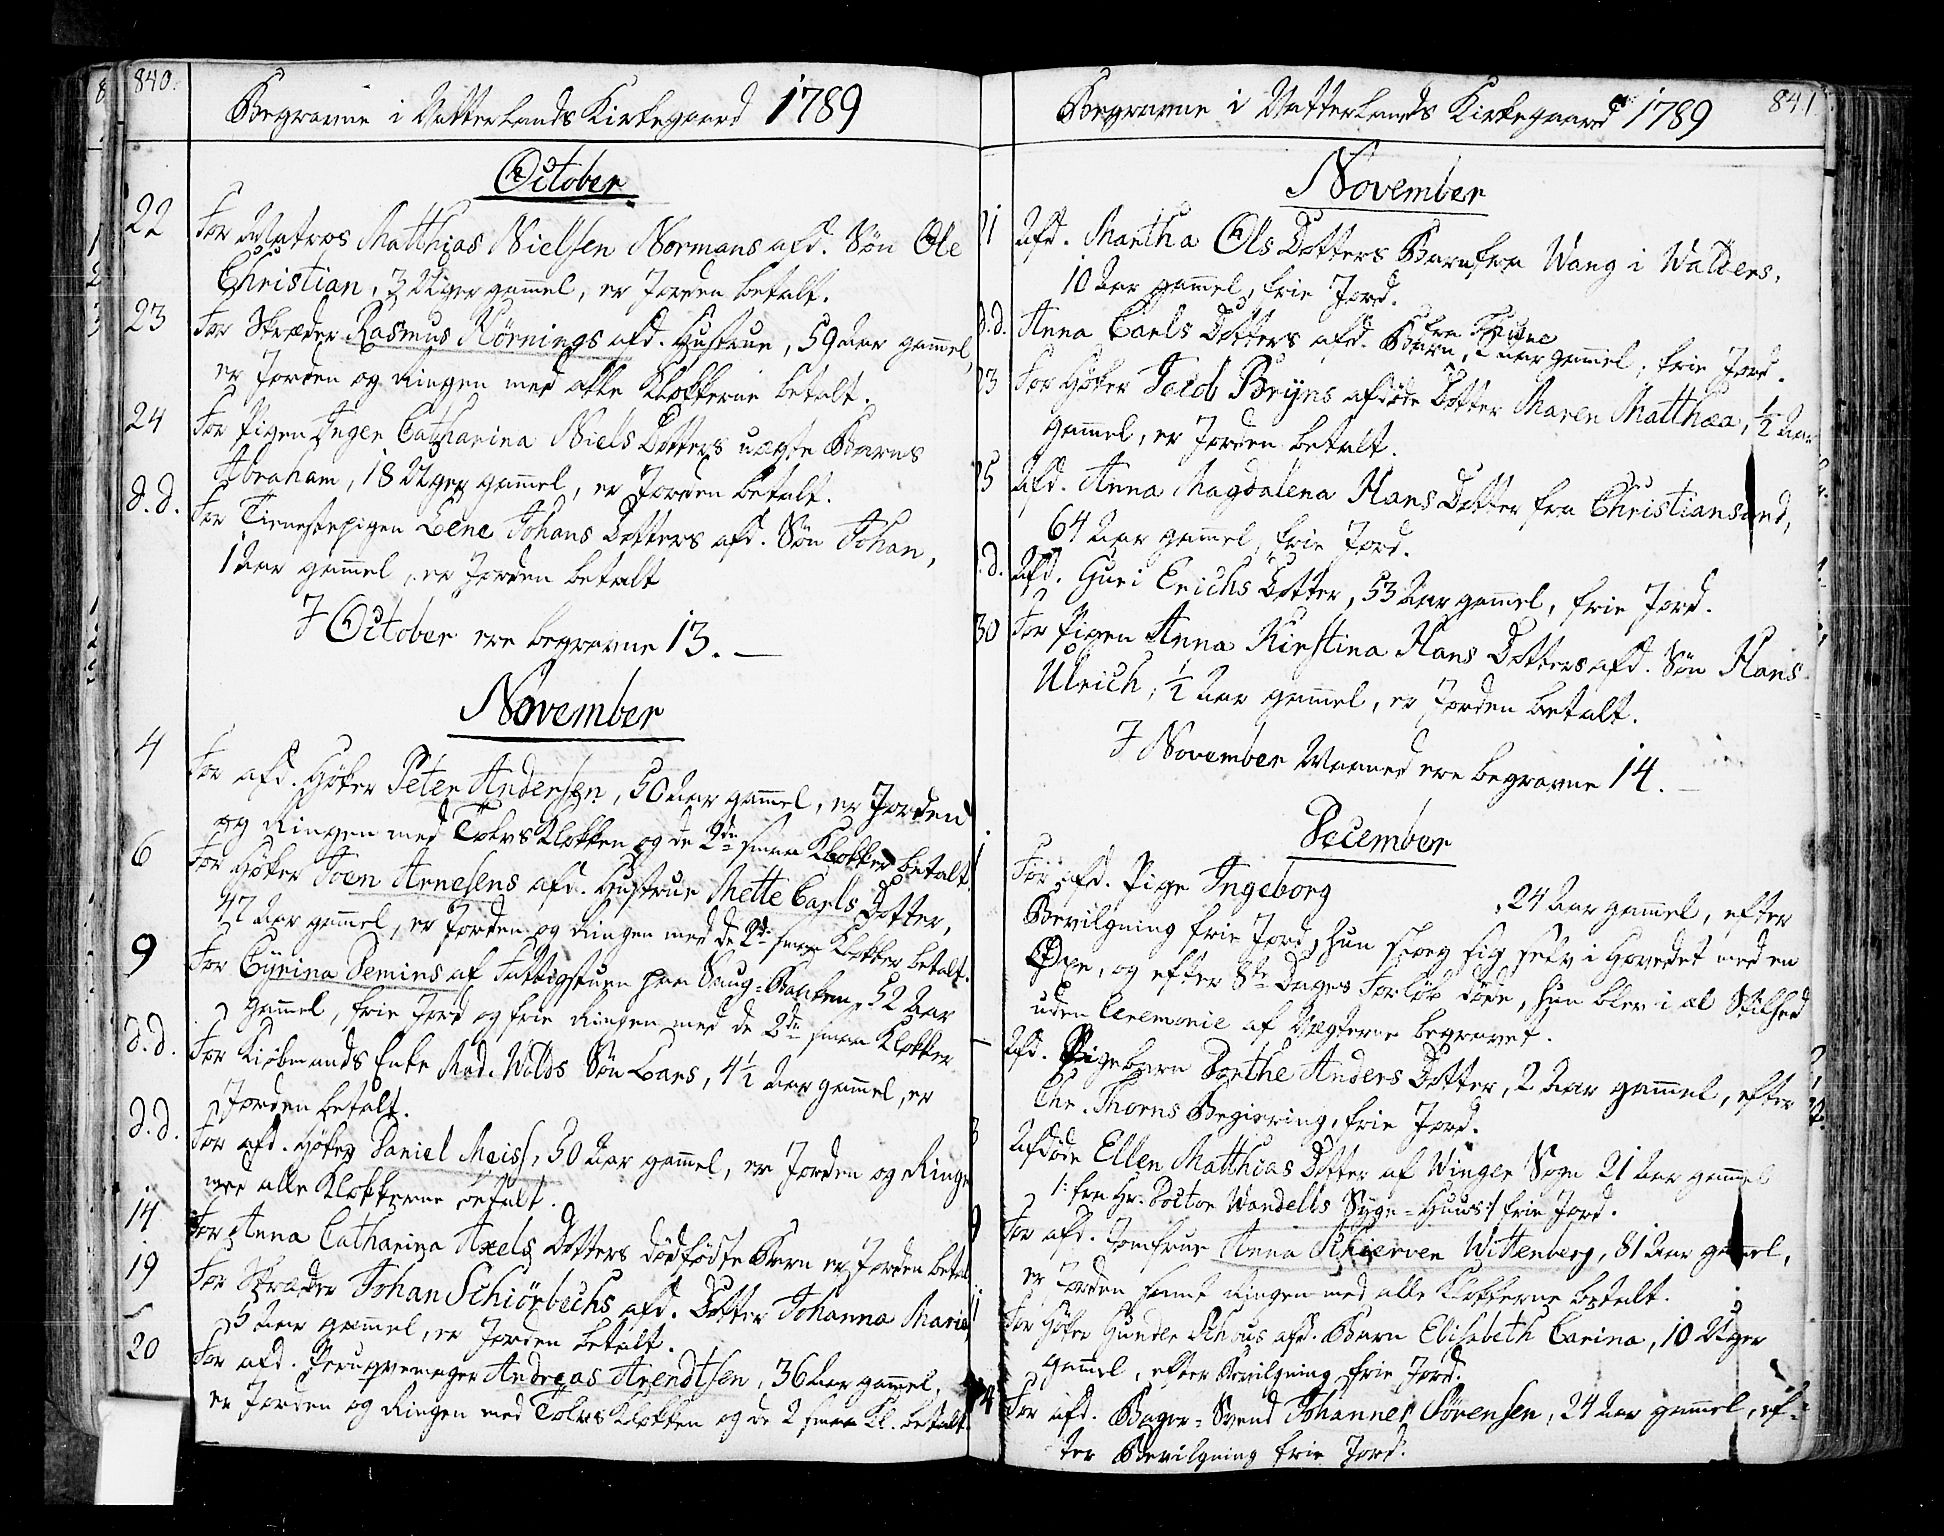 840.
Begravne i Vatterlands Kirkegaard 1789
October
22 For Matros Matthias Nielsen Normans afd. Søn Ole
Christian, 3 Uger gamel, er Jorden betalt.
23 For Skræder Rasmus Hörnings afd. Hustrue, 59 Aar gamel,
er Jorden og Ringen med alle Klokkerne betalt.
24 For Pigen Inger Catharina Niels Dotters uægte Barns
Abraham, 18 Uger gamel, er Jorden betalt.
d.d. For Tienestepigen Lene Johans Dotters afd. Søn Johan,
1 Aar gamel, er Jorden betalt
I October ere begravne 13.
November
4 For afd. Høker Peter Andersen, 50 Aar gamel, er Jorden
og Ringen med Tolvs Klokken og de 2de smaa Klokker betalt.
6 For Høker Joen Arnesens afd. Hustrue Mette Carls Dotter,
47 Aar gamel, er Jorden og Ringen med de 2de smaa Klokker betalt.
9 For Cyrina Demins af Fattigstuen paa Saug-Banken, 52 Aar
gamel, frie Jord og frie Ringen med de 2de smaa Klokker
d.d. For Kiøbmands Enke Mad. Wolds Søn Lars, 4½ Aar gamel, er
Jorden betalt.
d.d. For afd. Høker Daniel Meiss, 50 Aar gamel, er Jorden og Ringe
med alle Klokkerne betalt.
14 For Anna Catharina Axels Dotters dødfødte Barn er Jorden betalt
19 For Skræder Johan Schiörbechs afd. Dotter Johanna Maria,
5 Aar gamel, er Jorden betalt.
20 For afd. Peruqvemager Andreas Arendtsen, 36 Aar gamel,
er Jorden og Ringen med Tolvs Klokken og de 2 smaa Kl. betalt.
841
Begravne i Vatterlands Kirkegaard 1789
November
21 Afd. Martha Ols Dotters Barn fra Wang i Walders,
10 Aar gamel, frie Jord.
fra
d.d. Anna Carls Dotters afd. Barn, 2 Aar gamel, frie Jord.
23 For Høker Jacob Bryns afdøde Dotter Maren Matthea, ½ Aar
gamel, er Jorden betalt.
25 Afd. Anna Magdalena Hans Dotter fra Christiansand,
64 Aar gamel, frie Jord.
d.d. Afd. Guri Erichs Dotter, 53 Aar gamel, frie Jord.
30 For Pigen Anna Kirstina Hans Dotters afd. Søn Hans
Ulrich, ½ Aar gamel, er Jorden betalt.
I November Maaned ere begravne 14.
December
1 For afd. Pige Ingeborg , 24 Aar gamel, efter
Bevilgning frie Jord, hun slog sig selv i Hovedet med en
Øxe, og efter 8te Dages Forløb døde, hun blev i al Stilhed
uden Ceremonie af Vægterne begravet.
Afd. Pigebarn Dorthe Anders Dotter, 2 Aar gamel, efter
Chr. Thorns Begiering, frie Jord.
3 Afdøde Ellen Matthias Dotter af Winger Sogn 21 Aar gamel
/: fra Hr. Doctor Wandells Syge-Huus :/ frie Jord.
9 For afd. Jomfrue Anna Schierven Wittenberg, 81 Aar gamel,
er Jorden samt Ringen med alle Klokkerne betalt.
11 For Høker Gunder Schous afd. Barn Elisabeth Carina, 10 Uger
gamel, efter Bevilgning frie Jord.
14 For afd. Bager-Svend Johannes Sörensen, 24 Aar gamel, ef-
ter Bevilgning frie Jord.